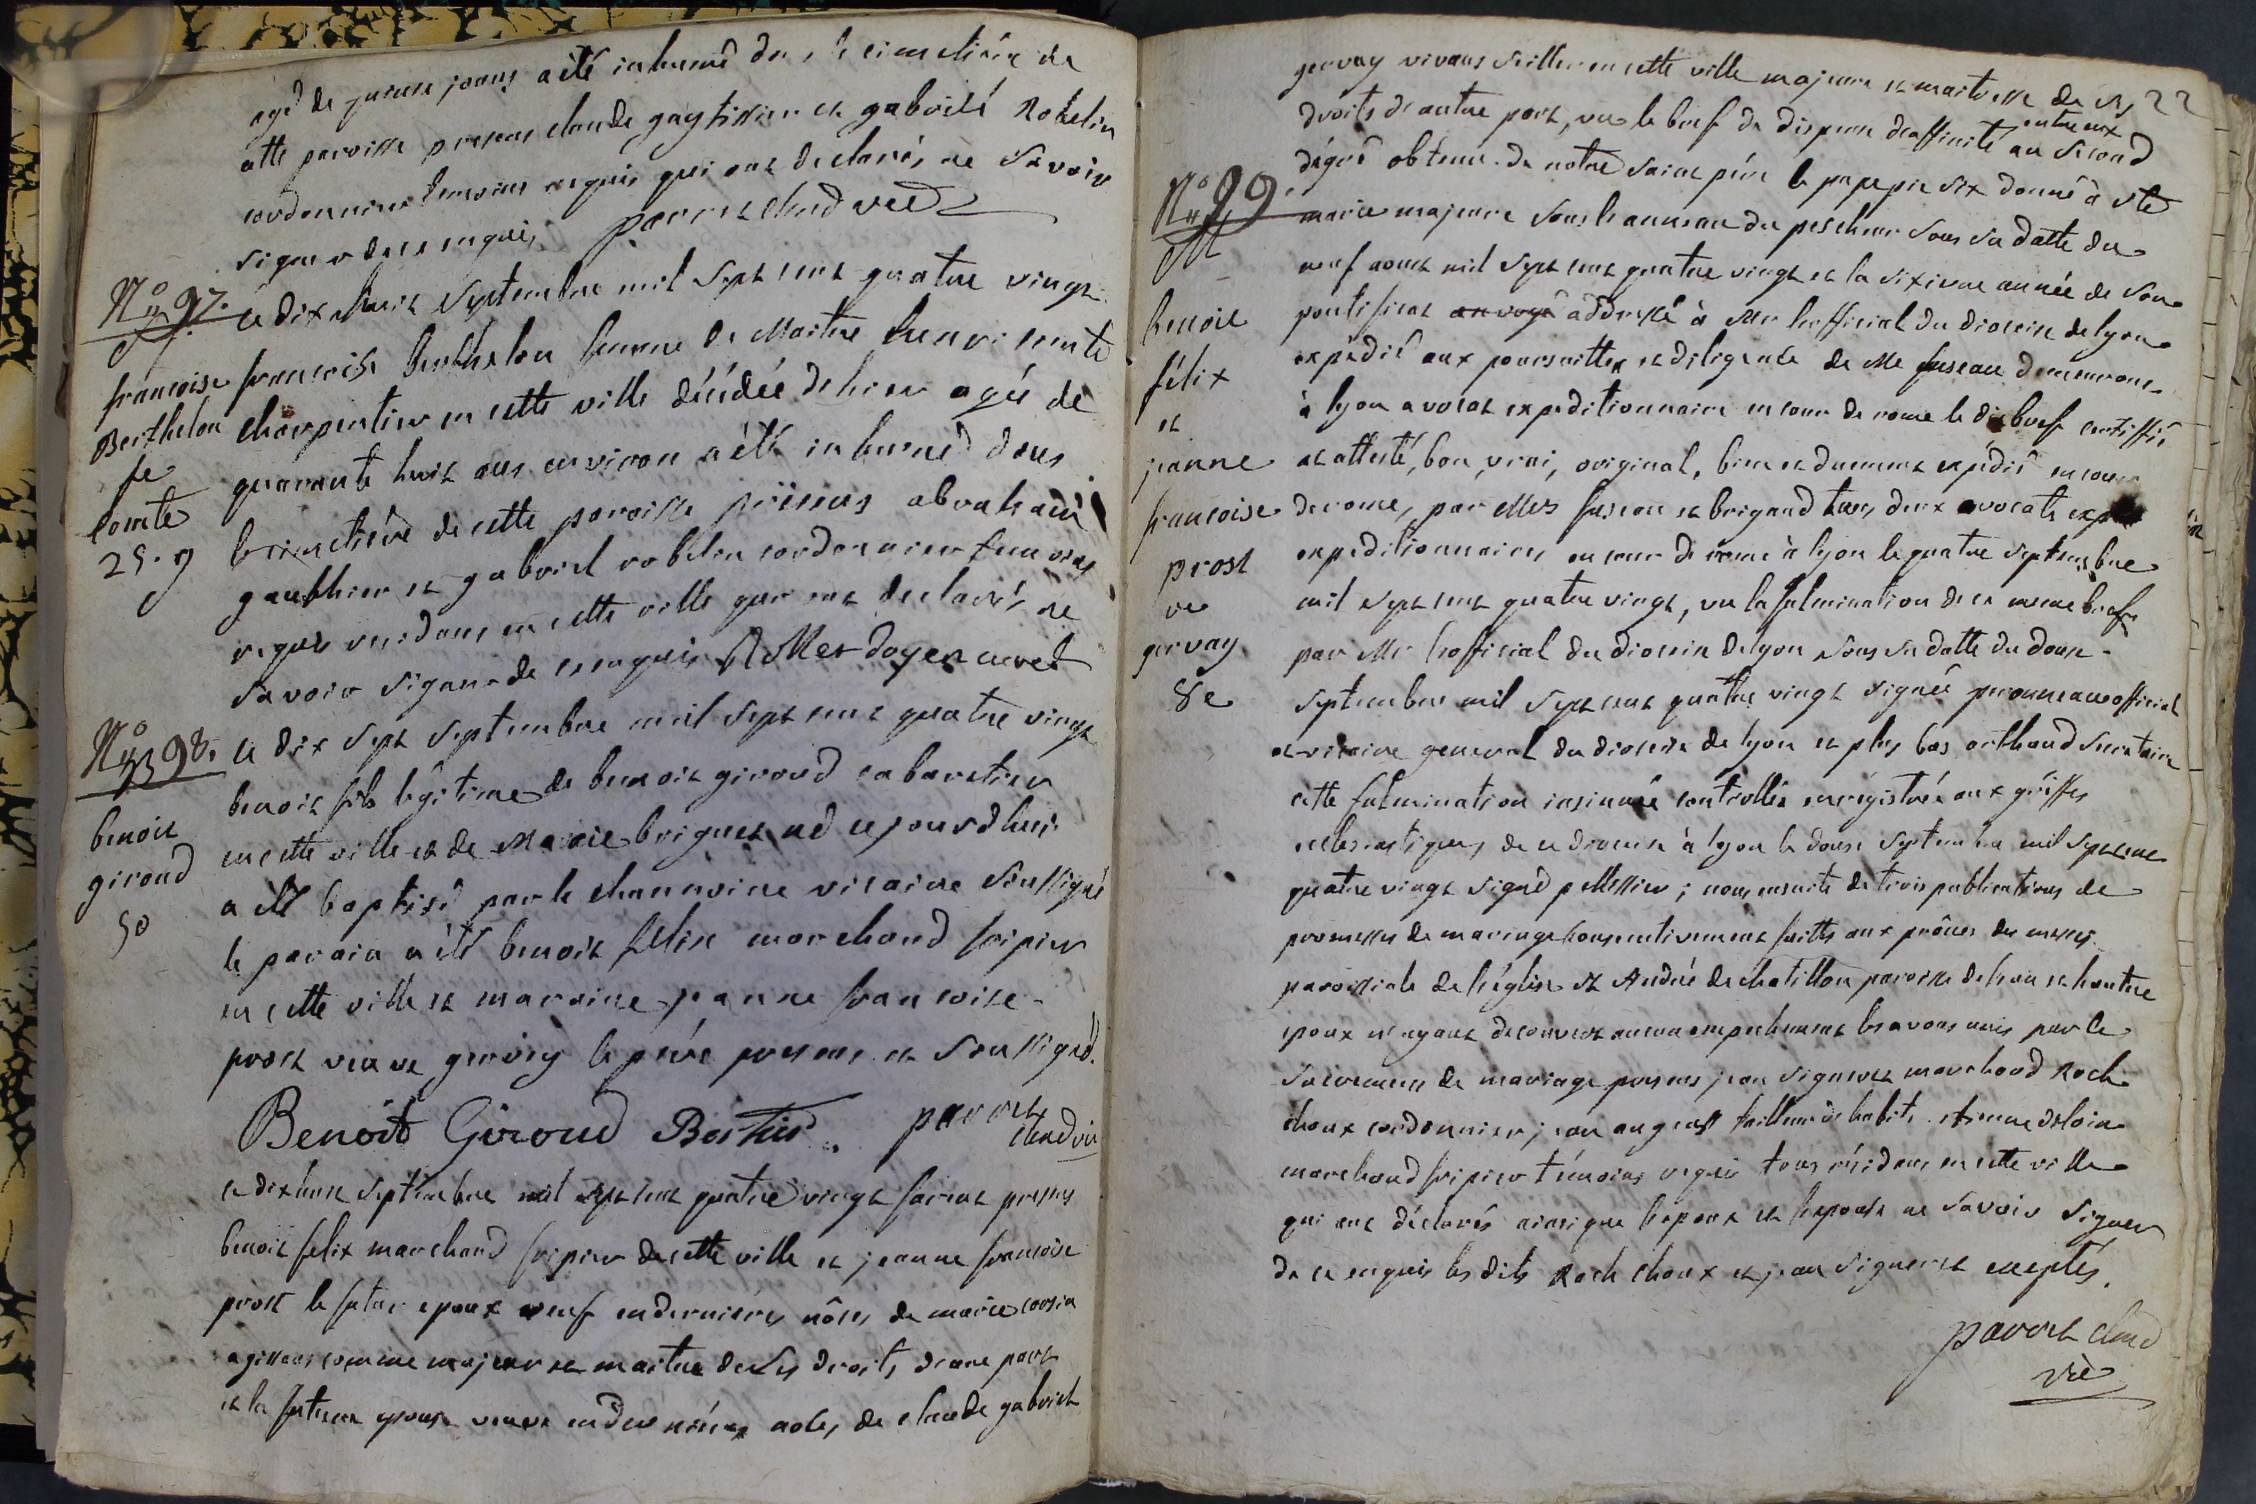 agé de quinze jours a été inhumé dans le cimetiére de
cette paroisse presens claude gaytissier et gabriél Robelin
cordonnier temoins requis qui ont declarés ne savoir
signer de ce enquis parret chnd vic
N° 97.
françoise
Berthelon
fe
comte
25. 9
ce dix huit septembre mil sept cent quatre vingt
francoise berthelon femme de Maitre henri comte
charpentier en cette ville décédée de hier agée de
quarante huit ans environ a été inhumé dans
le cimetiére de cette paroisse présens abraham
gauthier et gabriel robelin cordonnier temoins
requis residans en cette ville qui ont declarés ne
savoir signer de ce enquis doyen curé
N° 98.
B
benoit
giroud
50
ce dix sept septembre mil sept cent quatre vingt
benoit fils légitime de benoit giroud cabaretier
en cette ville et de Marie briguet né ce jourd'hui
a été baptisé par le channoine vicaire soussigné
le parain a été benoit félix marchand fripier
en cette ville et maraine jeanne francoise
prost veuve gervay le pére present et soussigné.
Benoit Giroud parret
chnd vic
ce dixhuit septembre mil sept cent quatre vingt furent presens
benoit felix marchand fripier de cette ville et jeanne francoise
prost le futur epoux veuf en derniéres nôces de marie
agissans comme majeur et maitre de ses droits d'une part
et la future epouse veuve en derniéres noces de claude gabriel
22
gervay vivans en cette ville majeure et maitresse de ses
droits d'autre part, vu le bref de dispense d'affinité entre eux au second
dégré obtenu de notre saint pére le pape pie six donné à ste
N° 99.
M
benoit
félix
et
jeanne
francoise
prost
ve
gervay
8e
marie majeure sous l'anneau du pescheur sous sa datte du
neuf aoust mil sept cent quatre vingt et la sixieme année de son
pontificat envoyé addressé à Mr l'official du diocese de lyon
expédié aux poursuittes et diligence de Me fuseau demeurant
à lyon avocat expeditionnaire en cour de rome le dit bref certiffié
et attesté, bon, vrai, original, bien et duement expédié en cour
de rome, par Mes et brigaud tous deux avocats
expeditionnaires en cour de rome à lyon le quatre septembre
mil sept cent quatre vingt, vu la fulmination de ce meme bref
par Mr l'official du diocese de lyon sous sa datte du douze
septembre mil sept cent quatre vingt signée official
et vicaire general du diocese de lyon et plus bas orthaud secretaire
cette fulmination insinuée controllée enrégistrée aux gréffes
ecclesiastiques de ce diocese à lyon le douze septembre mil sept cent
quatre vingt signé pellissier; nous ensuite de trois publications de
promesses de mariage consecutivement faittes aux prônes des messes
paroissiale de l'église st André de chatillon paroisse de l'un et l'autre
epoux n'ayant decouvert aucun empechement les avons unis par le
sacrement de mariage presens jean signeret marchand Roch
choux cordonnier; jean tailleur d'habits
marchand fripier témoins requis tous résidans en cette ville
qui ont déclarés ainsi que l'epoux et l'epouse ne savoir signer
de ce enquis les dits Roch choux et jean signeret exceptés.
parret chnd
vic